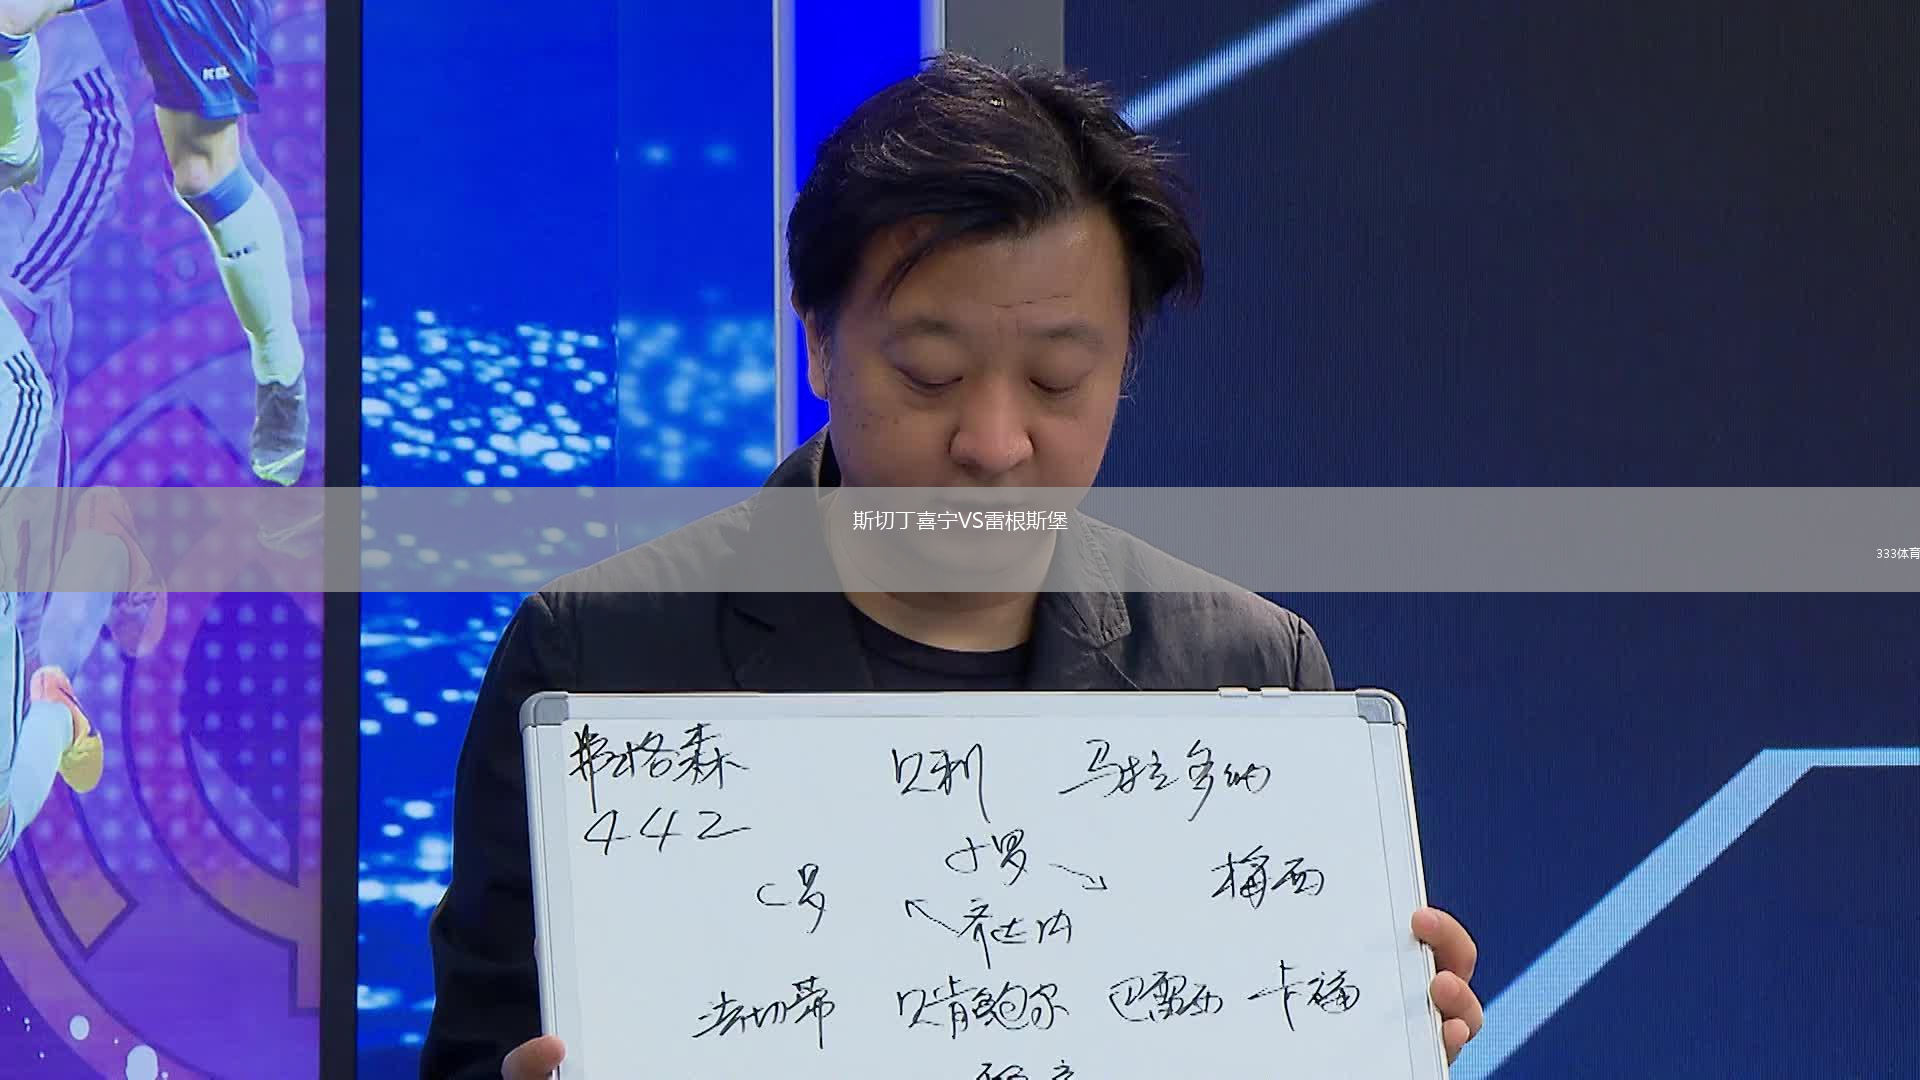 斯切丁喜宁VS雷根斯堡
333体育
弗格森 贝利 马拉多纳
442
小罗
C罗 梅西
齐达内
法切蒂 贝肯鲍尔 巴雷西 卡福